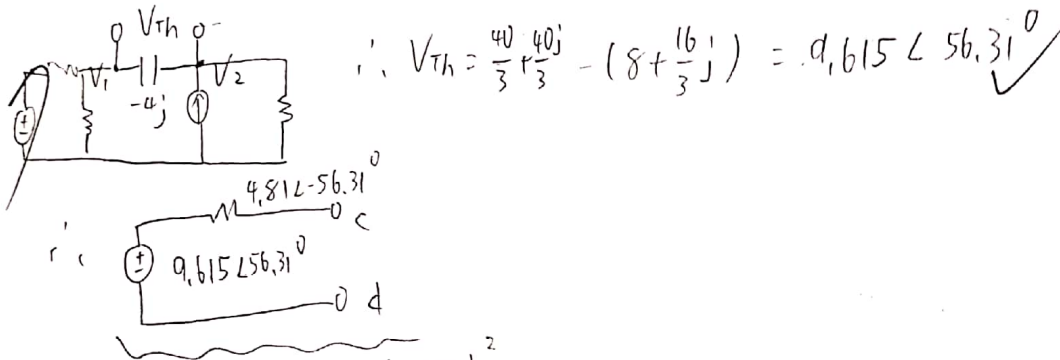 V_Th
V_1
V_2
-4j
∴ V_Th = 40/3 + 40j/3 - (8 + 16/3 j) = 9.615 ∠ 56.31°
4.81∠-56.31°
c
∴
9.615∠56.31°
d
2